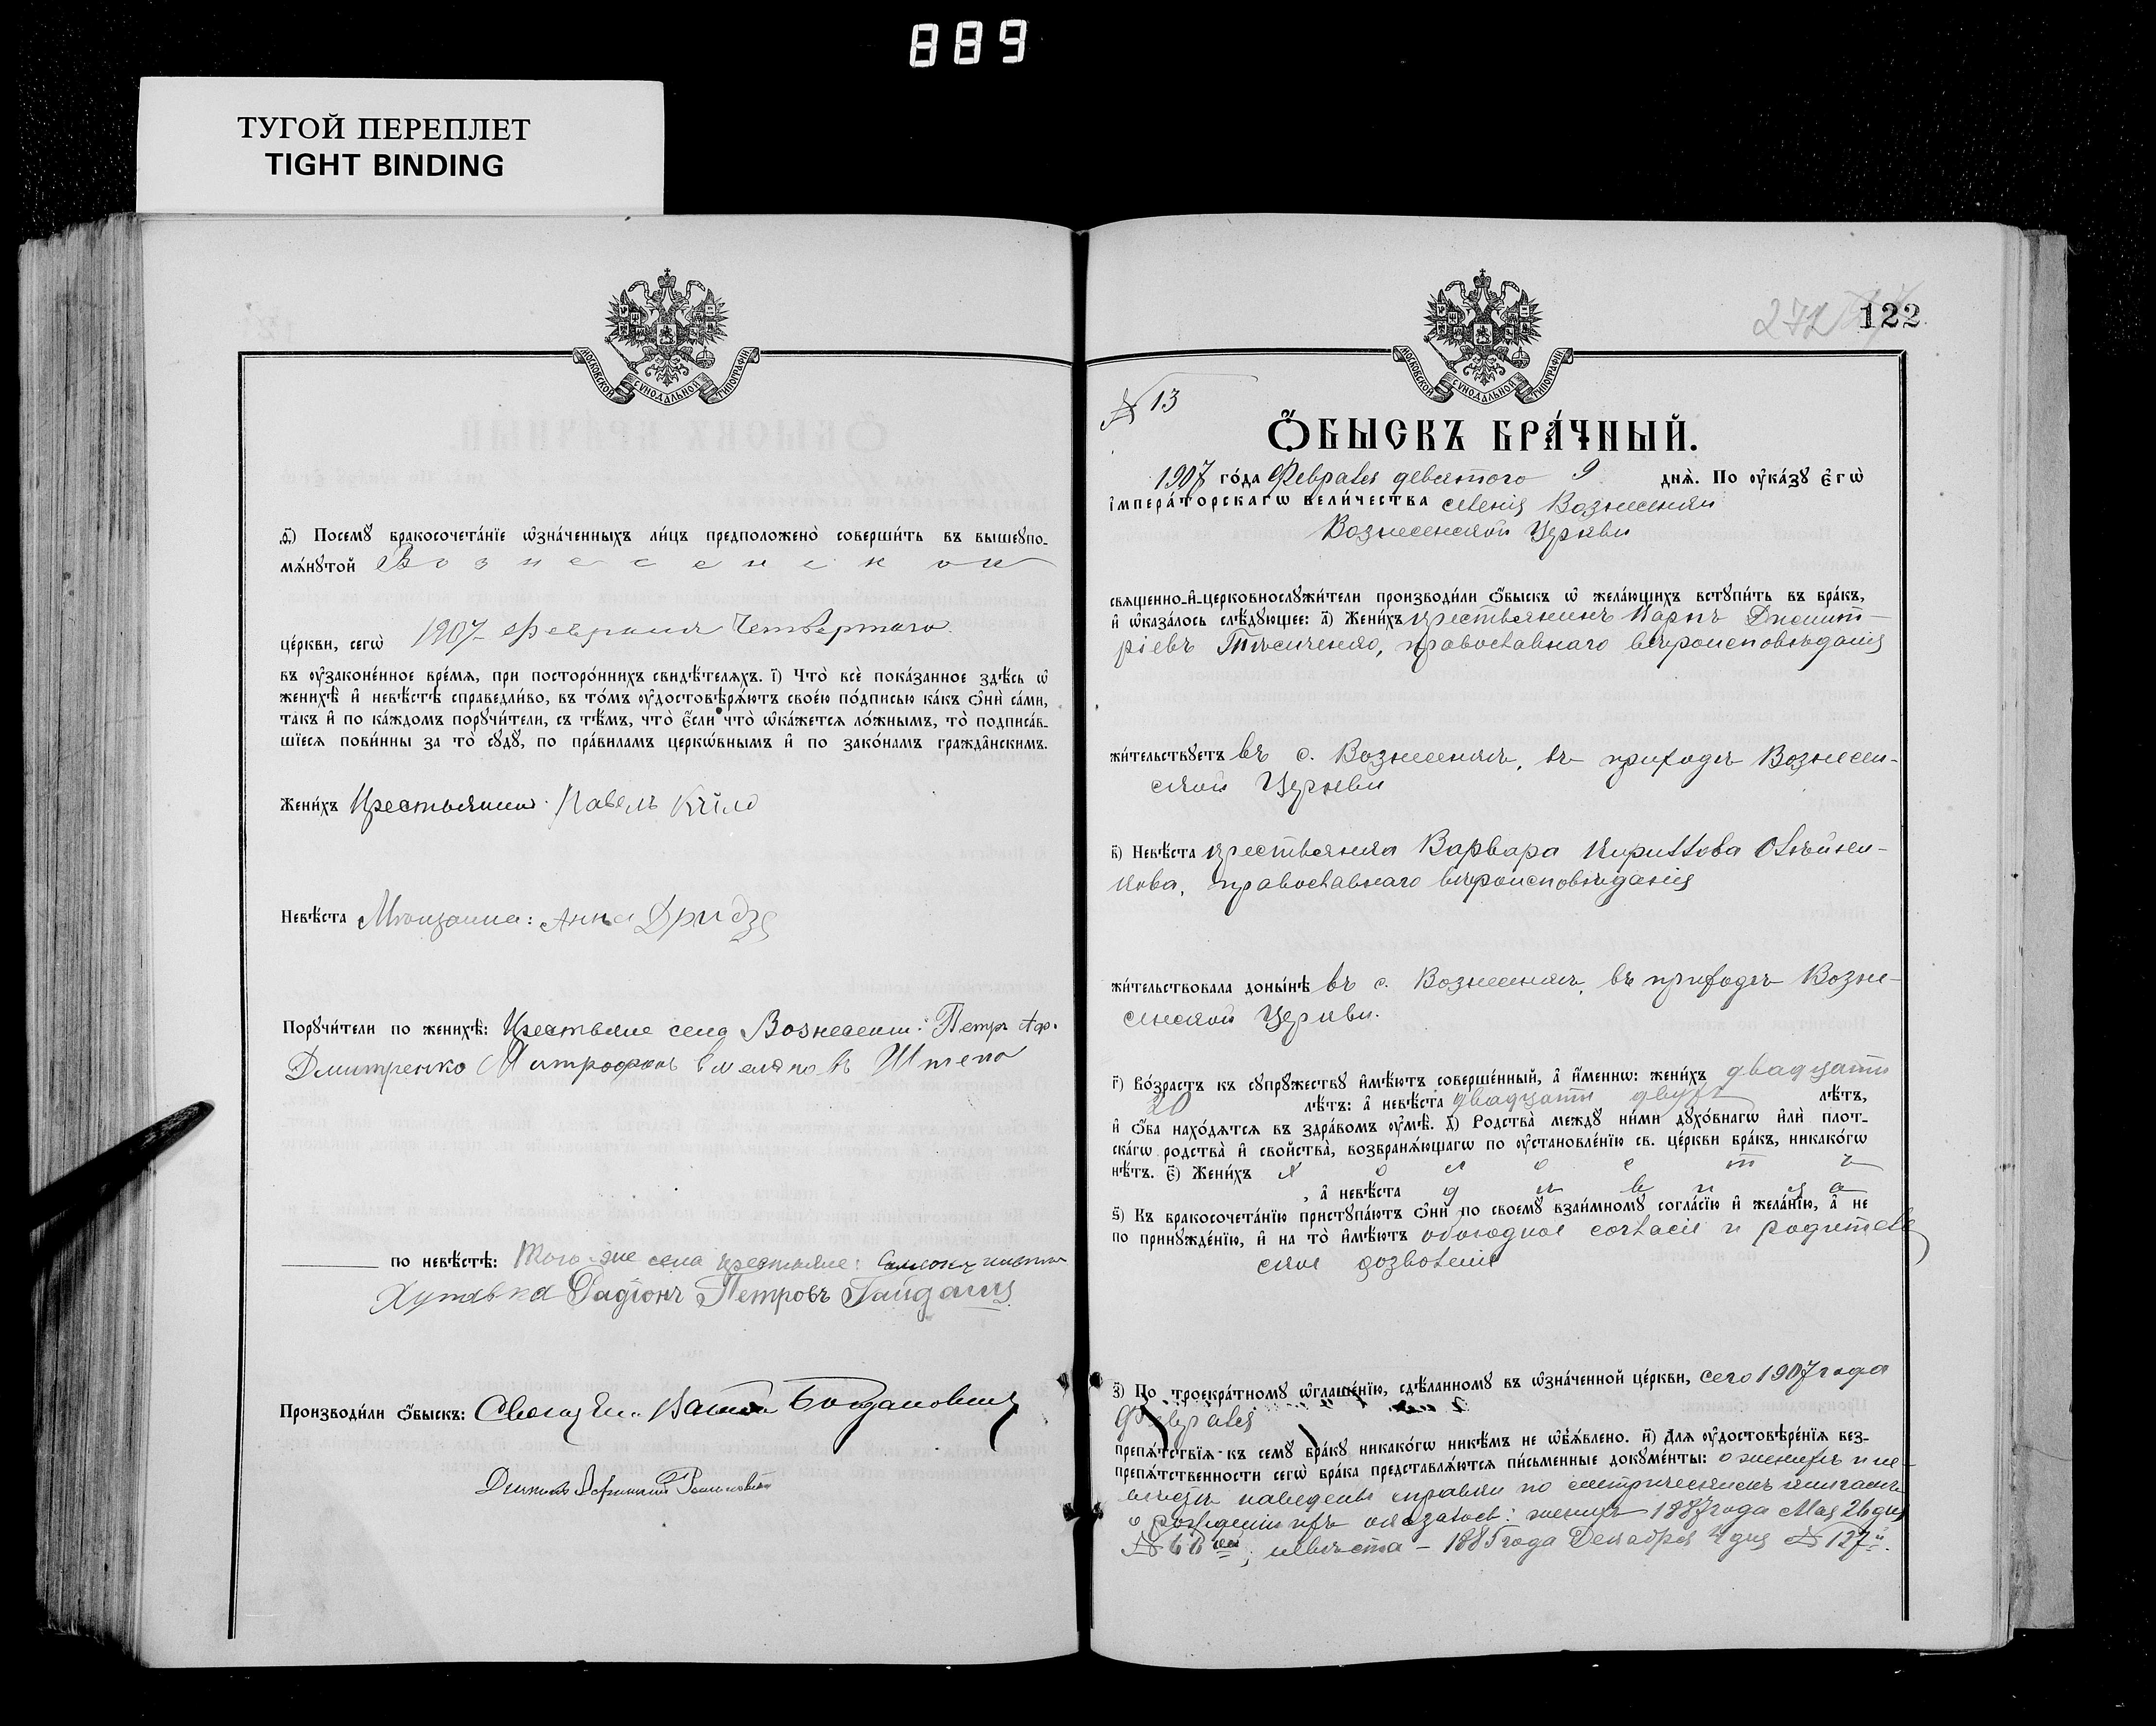 889
ТУГОЙ ПЕРЕПЛЕТ
TIGHT BINDING
МОСКОВСКОЙ СѴНОДАЛЬНОЙ ТИПОГРАФІИ
ѳ҃) Посемꙋ бракосочета́нїе ѡ҆зна́ченныхъ ли́цъ предположено̀ соверши́ть въ вышеꙋпо-
мѧ́нꙋтой Вознесенской
це́ркви, сегѡ̀ 1907 Февраля Четвертаго
въ ᲂу҆зако́не́нное вре́мѧ, при посторо́ннихъ свидѣ́телѧхъ. і҃) Что̀ всѐ пока́занное здѣ́сь ѡ҆
женихѣ̀ и҆ невѣ́стѣ справедли́во, въ то́мъ ᲂу҆достовѣрѧ́ютъ свое́ю по́дписью ка́къ ѻ҆нѝ са́ми,
та́къ и҆ по ка́ждомъ порꙋчи́тели, съ тѣ́мъ, что̀ є҆́сли что̀ ѡ҆ка́жетсѧ ло́жнымъ, то̀ подписа́в-
шїесѧ пови́нны за то̀ сꙋдꙋ̀, по пра́виламъ церкѡ́внымъ и҆ по зако́намъ гражда̑нскимъ.
Жени́хъ Крестьянин Павелъ
Невѣ́ста Мѣщанка: Анна Дридзе
Порꙋчи́тели по женихѣ̀: Крестьяне села Вознесенки: Петръ Аф.
Дмитренко Митрофанъ Емеляновъ Штепа
по невѣ́стѣ: Того-же села крестьяне:
Хутавка Радіонъ Петровъ Гайдашъ
Производи́ли ѻ҆́быскъ: Священ. Богдановичъ
122
№ 13
МОСКОВСКОЙ СѴНОДАЛЬНОЙ ТИПОГРАФІИ
Ѻ҆́БЫСКЪ БРА́ЧНЫЙ.
1907 го́да Февраля девятого 9 днѧ̀. По ᲂу҆ка́зꙋ є҆гѡ̀
і҆мпера́торскагѡ вели́чества селенія Вознесенки
Вознесенской Церкви
свѧще́нно-и҆-церковнослꙋжи́тели производи́ли ѻ҆́быскъ ѡ҆ жела́ющихъ встꙋпи́ть въ бра́къ,
и҆ ѡ҆каза́лось слѣ́дꙋющее: а҃) Жени́хъ крестьянинъ Карпъ Дмит-
ріевъ православнаго вѣроисповѣданія
жи́тельствꙋетъ въ с. Вознесенкѣ, въ приходѣ Вознесен-
ской Церкви
в҃) Невѣ́ста крестьянка Варвара Кириллова Олѣйни-
кова, православнаго вѣроисповѣданія
жи́тельствовала доны́нѣ въ с. Вознесенкѣ, въ приходѣ Возне-
сенской Церкви.
г҃) Во́зрастъ къ сꙋпрꙋ́жествꙋ и҆мѣ́ютъ соверше́нный, а҆ и҆́меннѡ: жени́хъ двадцати
20 лѣ́тъ: а҆ невѣ́ста двадцати двухъ лѣ́тъ,
и҆ ѻ҆́ба нахо́дѧтсѧ въ здра́вомъ ᲂу҆мѣ̀. д҃) Родства̀ междꙋ̀ ни́ми дꙋхо́внагѡ и҆лѝ плот-
ска́гѡ родства̀ и҆ свойства̀, возбранѧ́ющагѡ по ᲂу҆становле́нїю св. це́ркви бра́къ, никако́гѡ
нѣ́тъ. є҃) Жени́хъ холостъ
, а҆ невѣ́ста дѣвица
ѕ҃) Къ бракосочета́нїю пристꙋпа́ютъ ѻ҆нѝ по своемꙋ̀ взаи́мномꙋ согла́сїю и҆ жела́нїю, а҆ не
по принꙋжде́нїю, и҆ на то̀ и҆мѣ́ютъ обоюдное согласіе и родитель
ское дозволеніе
з҃) По троекра́тномꙋ ѡ҆глаше́нїю, сдѣ́ланномꙋ въ ѡ҆зна́ченной це́ркви, сего 1907 года
Февраля
препѧ́тствїѧ къ семꙋ̀ бра́кꙋ никако́гѡ никѣ́мъ не ѡ҆б̾ѧ́влено. и҃) Длѧ ᲂу҆достовѣре́нїѧ без-
препѧ́тственности сегѡ̀ бра́ка представлѧ́ютсѧ пи́сьменные докꙋме́нты: о женихѣ и не-
вѣстѣ наведены справки по метрическимъ книгамъ
о рожденіи ихъ оказалось: женихъ 1887 года Мая 26 дня
№ 66; невѣста — 1885 года Декабря 4 дня № 127